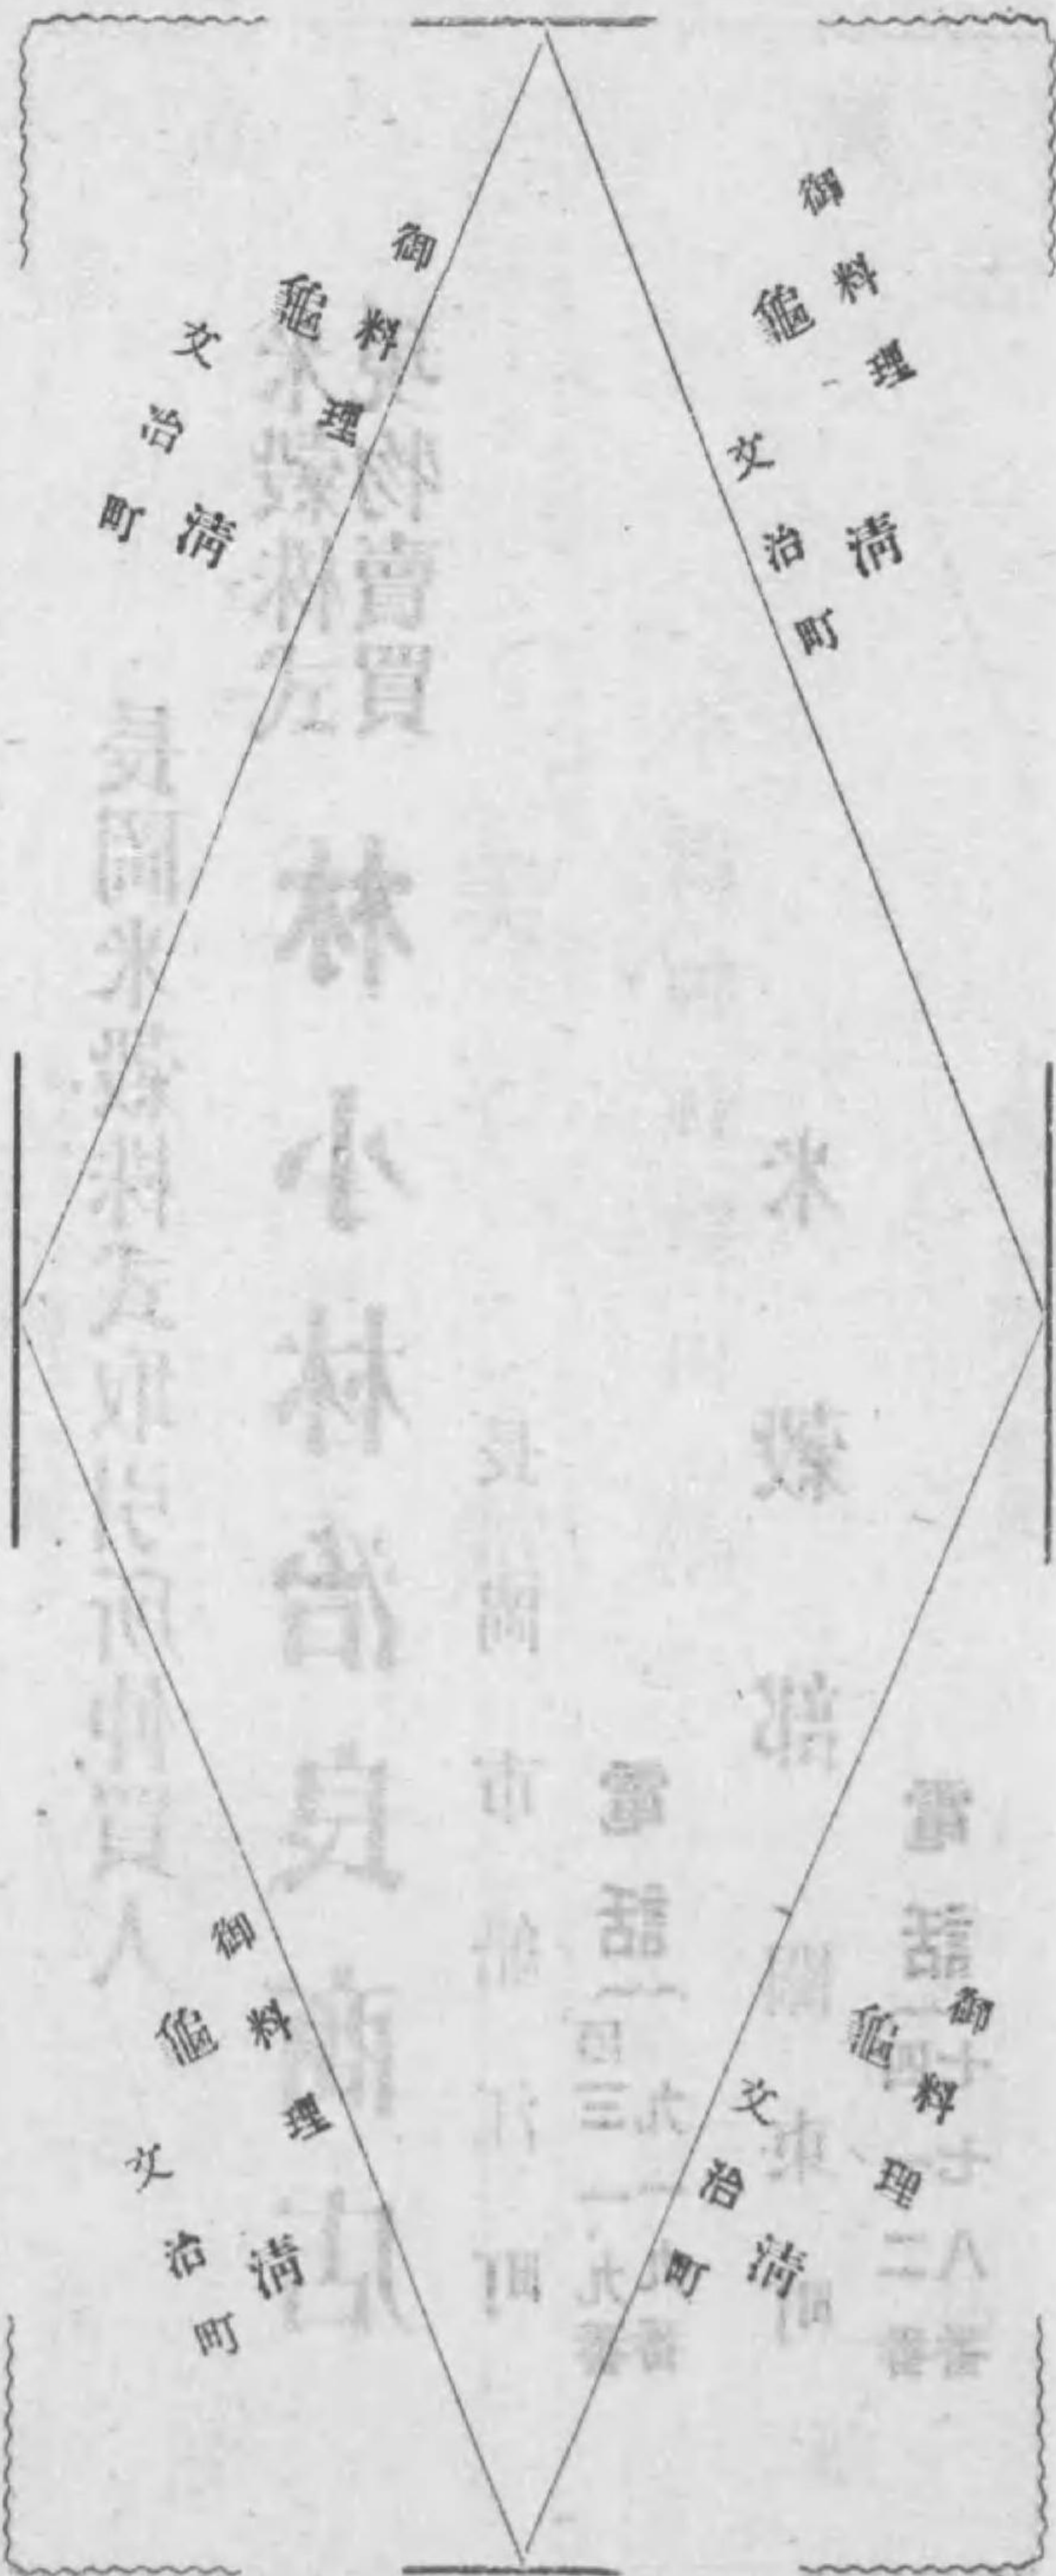 御料理
龜清
文治町
御料理
龜清
文治町
御料理
龜清
文治町
御料理
龜清
文治町